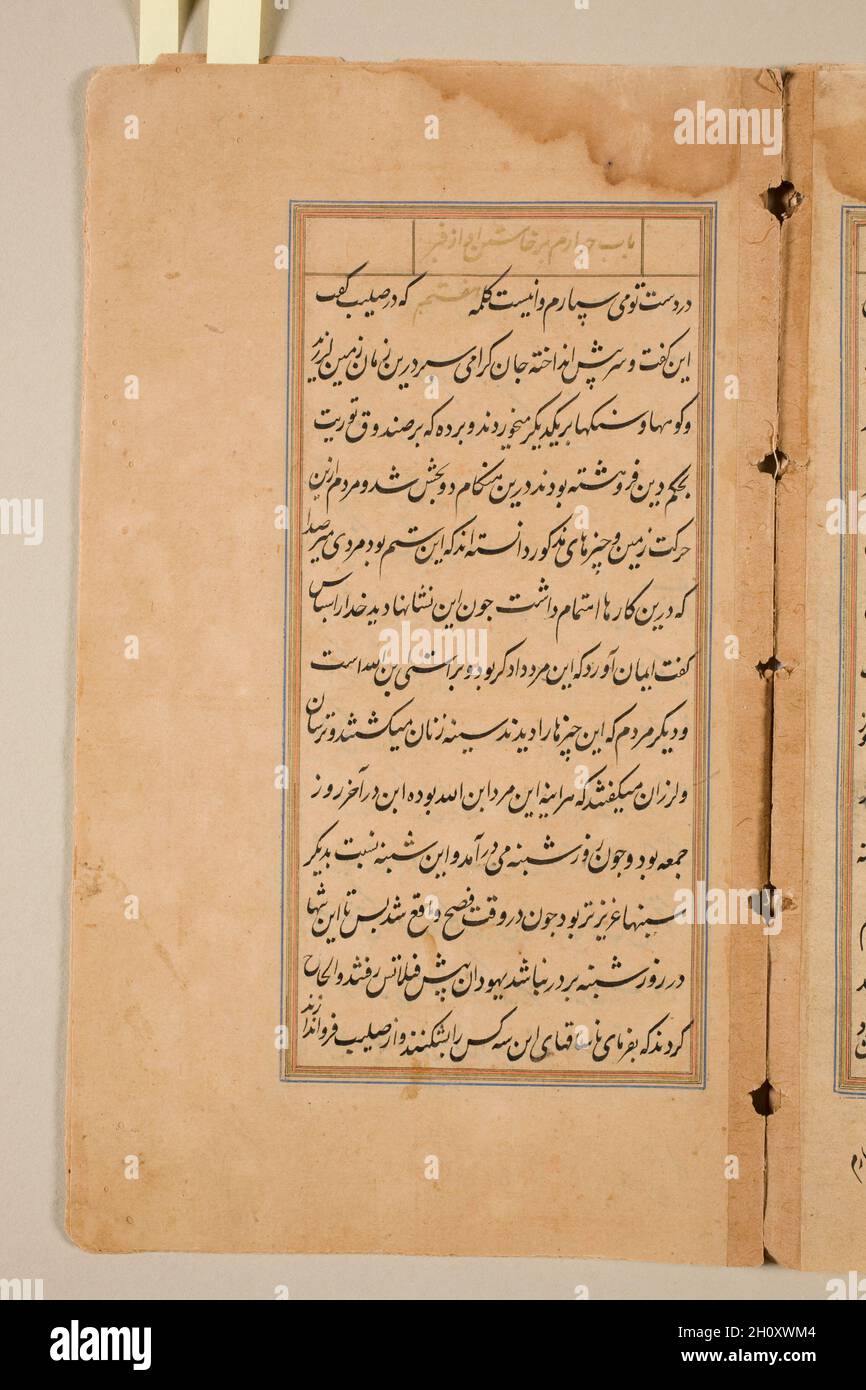 باب چهارم برخاستن او از قبر
در دست تو می سپارم و اینست کلمه هفتم که در صلیب گفت
این گفت و سر پیش انداخته جان کرامی سپرد درین زمان زمین لرزید
و کوهها و سنکها بر یکدیکر میخوردند و پرده که بر صندوق توریت
بحکم دین فروهشته بودند درین هنکام دو بخش شد و مردم ازین
حرکت زمین و چیزهای مذکور دانسته اند که این ستم بود مردی میرصدا
که درین کارها اهتمام داشت جون این نشانها دید خدا را سپاس
کفت ایمان آورد که این مرد دادکر بود و براستی بن الله است
و دیکر مردم که این چیزها را دیدند سینه زنان میکشتند و ترسان
و لرزان میکفتند که هراینه این مرد ابن الله بوده این در آخر روز
جمعه بود و جون روز شبنه می در آمد و این شبنه نسبت بدیکر
شبنها عزیزتر بود جون در وقت فصح واقع شد پس تا این تنها
در روز شبنه بر دار نباشد یهودان پیش فیلاتس رفتند و الحاح
کردند که بفرمای تا ساقهای این سه کس را بشکنند و از صلیب فرو اندازند
alamy
Image ID: 2H0XWM4
www.alamy.com